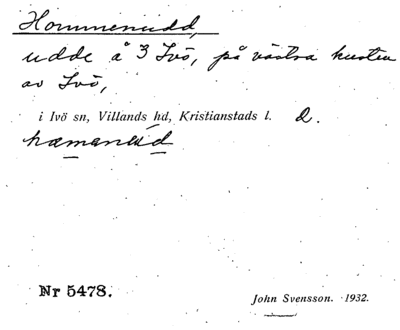 Hommenudd,
udde å 3 Ivö, på västra kusten
av Ivö,
i Ivö sn, Villands hd, Kristianstads l. D.
hamanud
Nr 5478.
John Svensson. 1932.